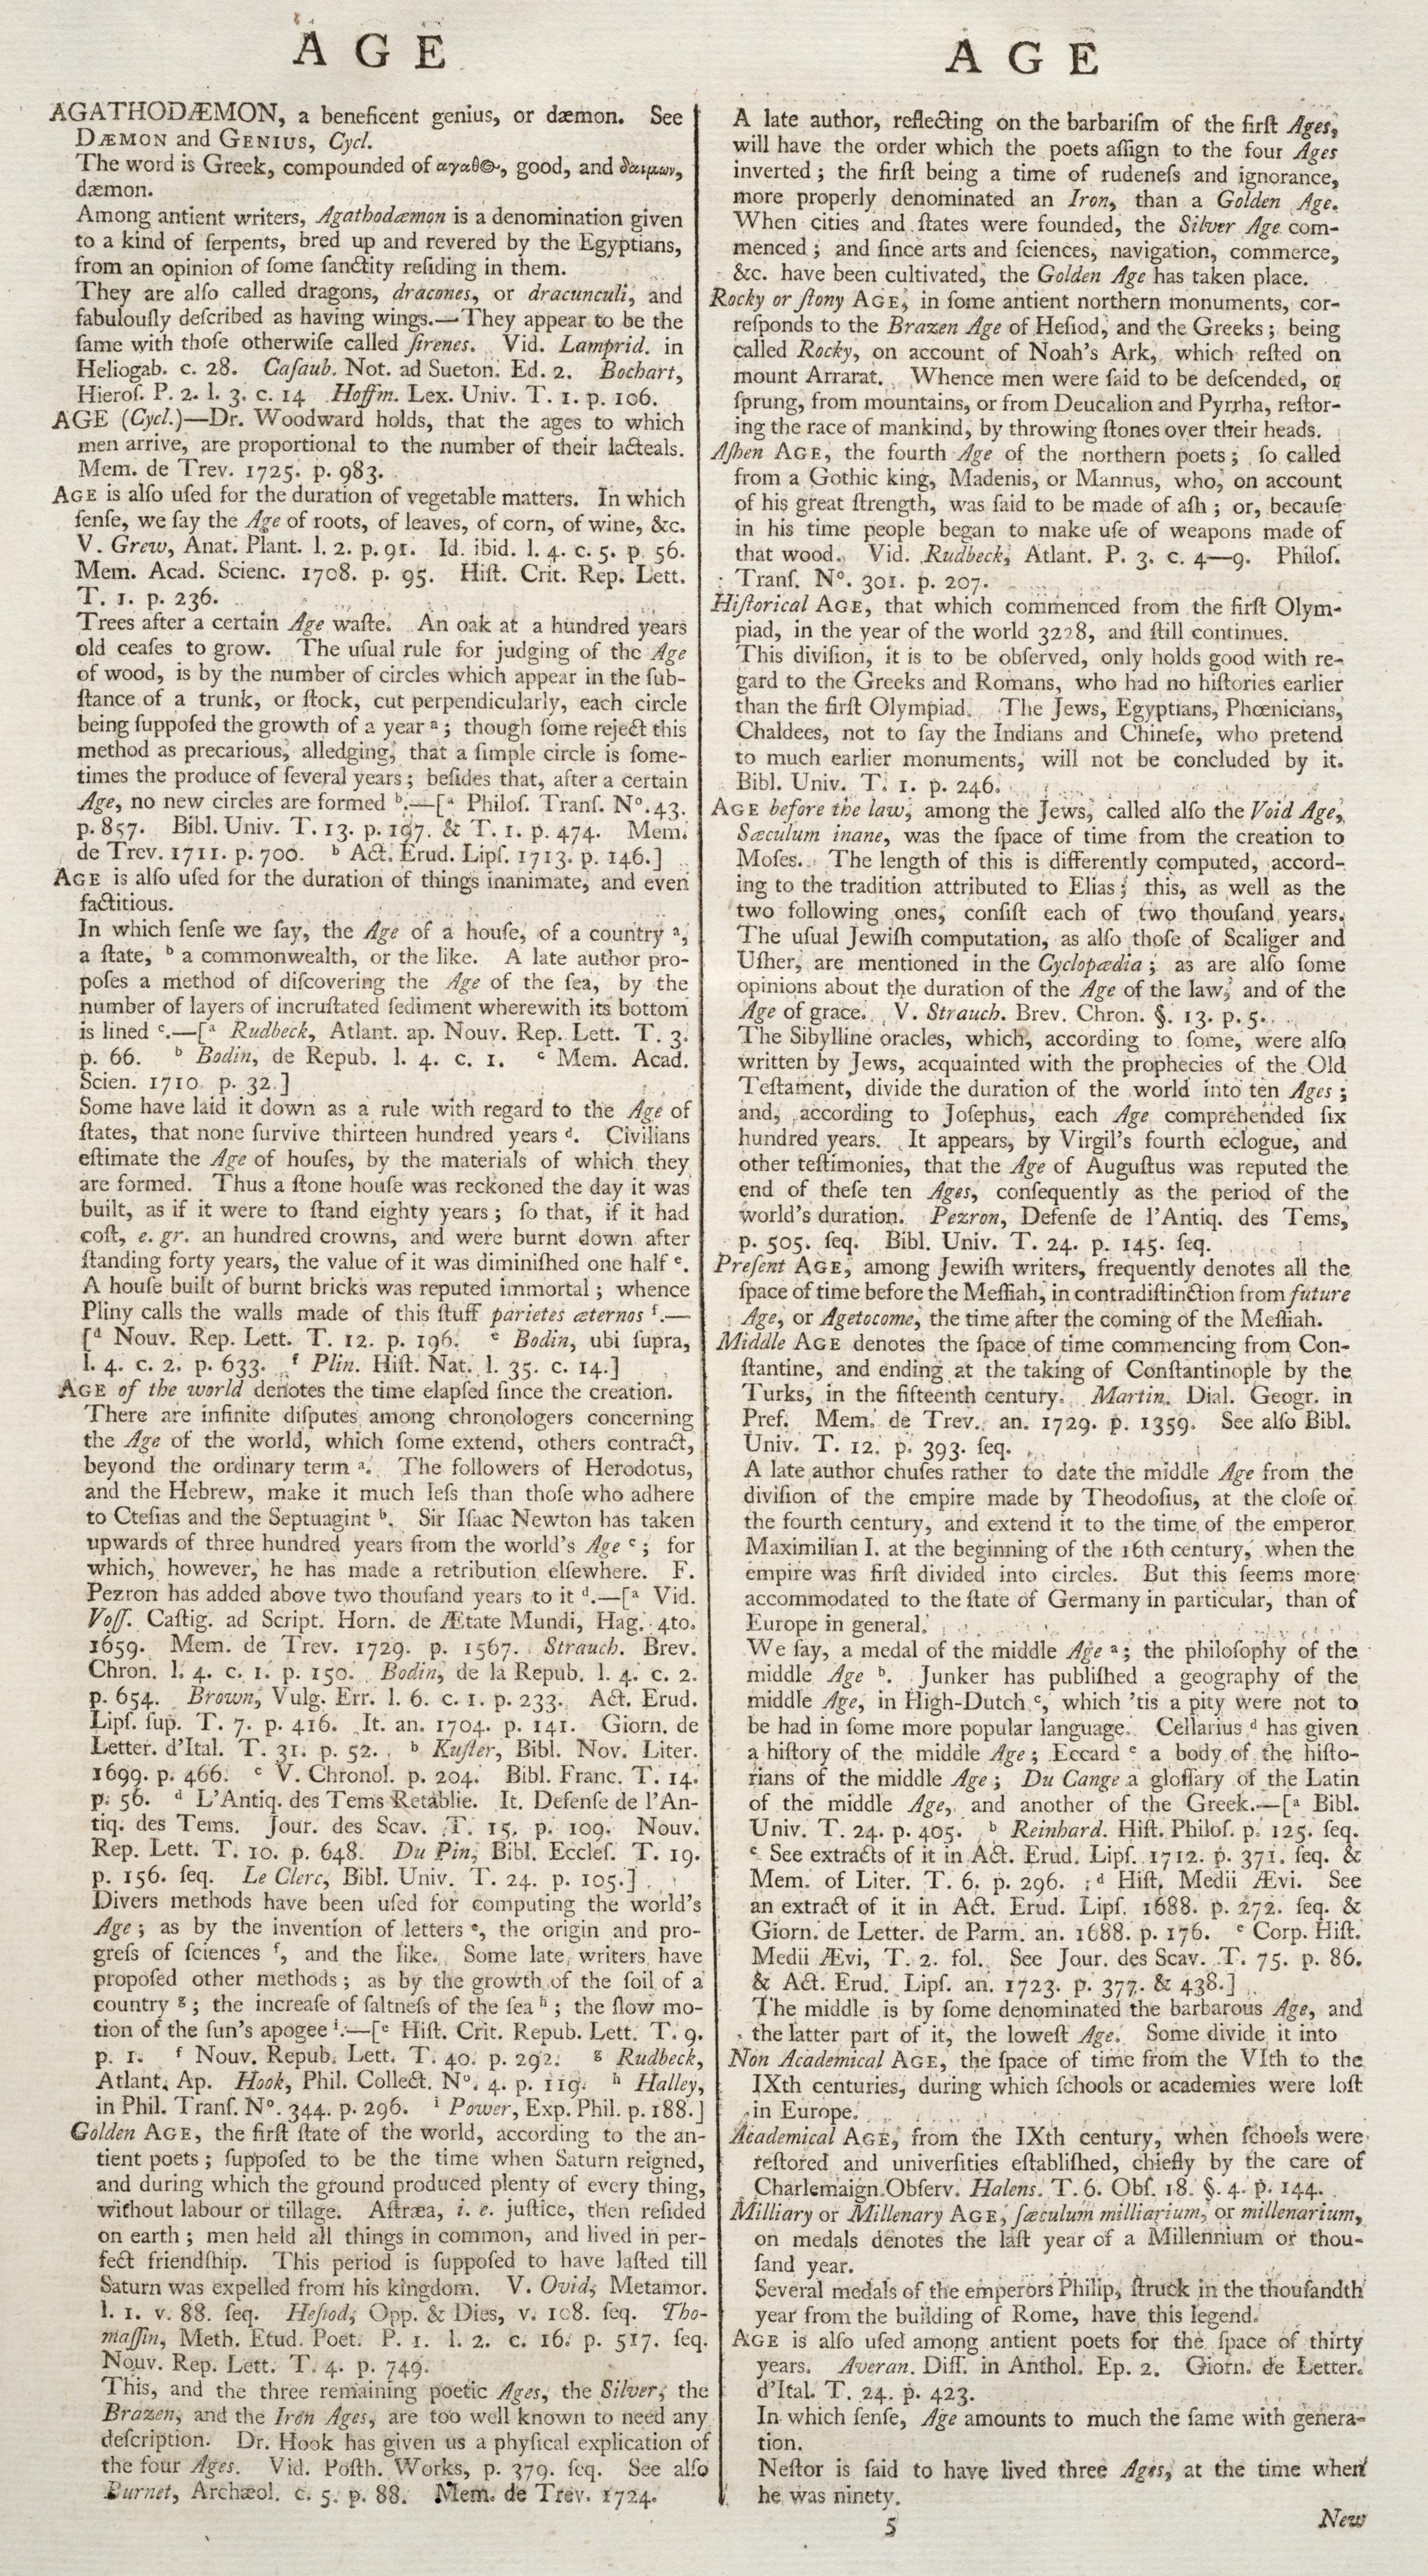 A G E
AGATHODÆMON, a beneficent genius, or dæmon. See
DÆMON and GENIUS, Cycl.
The word is Greek, compounded of αγαθ☉, good, and δαιμων,
dæmon.
Among antient writers, Agathodæmon is a denomination given
to a kind of ſerpents, bred up and revered by the Egyptians,
from an opinion of ſome ſanctity reſiding in them.
They are alſo called dragons, dracones, or dracunculi, and
fabulouſly deſcribed as having wings.—They appear to be the
ſame with thoſe otherwiſe called ſirenes. Vid. Lamprid. in
Heliogab. c. 28. Caſaub. Not. ad Sueton. Ed. 2. Bochart,
Hieroſ. P. 2. l. 3. c. 14 Hoffm. Lex. Univ. T. 1. p. 106.
AGE (Cycl.)—Dr. Woodward holds, that the ages to which
men arrive, are proportional to the number of their lacteals.
Mem. de Trev. 1725. p. 983.
AGE is alſo uſed for the duration of vegetable matters. In which
ſenſe, we ſay the Age of roots, of leaves, of corn, of wine, &c.
V. Grew, Anat. Plant. l. 2. p. 91. Id. ibid. l. 4. c. 5. p. 56.
Mem. Acad. Scienc. 1708. p. 95. Hiſt. Crit. Rep. Lett.
T. 1. p. 236.
Trees after a certain Age waſte. An oak at a hundred years
old ceaſes to grow. The uſual rule for judging of the Age
of wood, is by the number of circles which appear in the ſub-
ſtance of a trunk, or ſtock, cut perpendicularly, each circle
being ſuppoſed the growth of a year a; though ſome reject this
method as precarious, alledging, that a ſimple circle is ſome-
times the produce of ſeveral years; beſides that, after a certain
Age, no new circles are formed b.—[a Philoſ. Tranſ. No. 43.
p. 857. Bibl. Univ. T. 13. p. 197. & T. 1. p. 474. Mem.
de Trev. 1711. p. 700. b Act. Erud. Lipſ. 1713. p. 146.]
AGE is alſo uſed for the duration of things inanimate, and even
factitious.
In which ſenſe we ſay, the Age of a houſe, of a country a,
a ſtate, b a commonwealth, or the like. A late author pro-
poſes a method of diſcovering the Age of the ſea, by the
number of layers of incruſtated ſediment wherewith its bottom
is lined c.—[a Rudbeck, Atlant. ap. Nouv. Rep. Lett. T. 3.
p. 66. b Bodin, de Repub. l. 4. c. 1. c Mem. Acad.
Scien. 1710 p. 32.]
Some have laid it down as a rule with regard to the Age of
ſtates, that none ſurvive thirteen hundred years d. Civilians
eſtimate the Age of houſes, by the materials of which they
are formed. Thus a ſtone houſe was reckoned the day it was
built, as if it were to ſtand eighty years; ſo that, if it had
coſt, e. gr. an hundred crowns, and were burnt down after
ſtanding forty years, the value of it was diminiſhed one half e.
A houſe built of burnt bricks was reputed immortal; whence
Pliny calls the walls made of this ſtuff parietes æternos f.—
[d Nouv. Rep. Lett. T. 12. p. 196. e Bodin, ubi ſupra,
l. 4. c. 2. p. 633. f Plin. Hiſt. Nat. l. 35. c. 14.]
AGE of the world denotes the time elapſed ſince the creation.
There are infinite diſputes among chronologers concerning
the Age of the world, which ſome extend, others contract,
beyond the ordinary term a. The followers of Herodotus,
and the Hebrew, make it much leſs than thoſe who adhere
to Cteſias and the Septuagint b. Sir Iſaac Newton has taken
upwards of three hundred years from the world's Age c; for
which, however, he has made a retribution elſewhere. F.
Pezron has added above two thouſand years to it d.—[a Vid.
Voſſ. Caſtig. ad Script. Horn. de Ætate Mundi, Hag. 4to.
1659. Mem. de Trev. 1729. p. 1567. Strauch. Brev.
Chron. l. 4. c. 1. p. 150. Bodin, de la Repub. l. 4. c. 2.
p. 654. Brown, Vulg. Err. l. 6. c. 1. p. 233. Act. Erud.
Lipſ. ſup. T. 7. p. 416. It. an. 1704. p. 141. Giorn. de
Letter. d'Ital. T. 31. p. 52. b Kuſter, Bibl. Nov. Liter.
1699. p. 466. c V. Chronol. p. 204. Bibl. Franc. T. 14.
p. 56. d L'Antiq. des Tems Retablie. It. Defenſe de l'An-
tiq. des Tems. Jour. des Scav. T. 15. p. 109. Nouv.
Rep. Lett. T. 10. p. 648. Du Pin, Bibl. Eccleſ. T. 19.
p. 156. ſeq. Le Clerc, Bibl. Univ. T. 24. p. 105.]
Divers methods have been uſed for computing the world's
Age; as by the invention of letters e, the origin and pro-
greſs of ſciences f, and the like. Some late writers have
propoſed other methods; as by the growth of the ſoil of a
country g; the increaſe of ſaltneſs of the ſea h; the ſlow mo-
tion of the ſun's apogee i.—[e Hiſt. Crit. Repub. Lett. T. 9.
p. 1. f Nouv. Repub. Lett. T. 40. p. 292. g Rudbeck,
Atlant. Ap. Hook, Phil. Collect. No. 4. p. 119. h Halley,
in Phil. Tranſ. No. 344. p. 296. i Power, Exp. Phil. p. 188.]
Golden AGE, the firſt ſtate of the world, according to the an-
tient poets; ſuppoſed to be the time when Saturn reigned,
and during which the ground produced plenty of every thing,
without labour or tillage. Aſtræa, i. e. juſtice, then reſided
on earth; men held all things in common, and lived in per-
fect friendſhip. This period is ſuppoſed to have laſted till
Saturn was expelled from his kingdom. V. Ovid, Metamor.
l. 1. v. 88. ſeq. Heſiod, Opp. & Dies, v. 108. ſeq. Tho-
maſſin, Meth. Etud. Poet. P. 1. l. 2. c. 16. p. 517. ſeq.
Nouv. Rep. Lett. T. 4. p. 749.
This, and the three remaining poetic Ages, the Silver, the
Brazen, and the Iron Ages, are too well known to need any
deſcription. Dr. Hook has given us a phyſical explication of
the four Ages. Vid. Poſth. Works, p. 379. ſeq. See alſo
Burnet, Archæol. c. 5. p. 88. Mem. de Trev. 1724.
A G E
A late author, reflecting on the barbariſm of the firſt Ages,
will have the order which the poets aſſign to the four Ages
inverted; the firſt being a time of rudeneſs and ignorance,
more properly denominated an Iron, than a Golden Age.
When cities and ſtates were founded, the Silver Age com-
menced; and ſince arts and ſciences, navigation, commerce,
&c. have been cultivated, the Golden Age has taken place.
Rocky or ſtony AGE, in ſome antient northern monuments, cor-
reſponds to the Brazen Age of Heſiod, and the Greeks; being
called Rocky, on account of Noah's Ark, which reſted on
mount Arrarat. Whence men were ſaid to be deſcended, or
ſprung, from mountains, or from Deucalion and Pyrrha, reſtor-
ing the race of mankind, by throwing ſtones over their heads.
Aſhen AGE, the fourth Age of the northern poets; ſo called
from a Gothic king, Madenis, or Mannus, who, on account
of his great ſtrength, was ſaid to be made of aſh; or, becauſe
in his time people began to make uſe of weapons made of
that wood. Vid. Rudbeck, Atlant. P. 3. c. 4—9. Philoſ.
Tranſ. No. 301. p. 207.
Hiſtorical AGE, that which commenced from the firſt Olym-
piad, in the year of the world 3228, and ſtill continues.
This diviſion, it is to be obſerved, only holds good with re-
gard to the Greeks and Romans, who had no hiſtories earlier
than the firſt Olympiad. The Jews, Egyptians, Phœnicians,
Chaldees, not to ſay the Indians and Chineſe, who pretend
to much earlier monuments, will not be concluded by it.
Bibl. Univ. T. 1. p. 246.
AGE before the law, among the Jews, called alſo the Void Age,
Sæculum inane, was the ſpace of time from the creation to
Moſes. The length of this is differently computed, accord-
ing to the tradition attributed to Elias; this, as well as the
two following ones, conſiſt each of two thouſand years.
The uſual Jewiſh computation, as alſo thoſe of Scaliger and
Uſher, are mentioned in the Cyclopædia; as are alſo ſome
opinions about the duration of the Age of the law, and of the
Age of grace. V. Strauch. Brev. Chron. §. 13. p. 5.
The Sibylline oracles, which, according to ſome, were alſo
written by Jews, acquainted with the prophecies of the Old
Teſtament, divide the duration of the world into ten Ages;
and, according to Joſephus, each Age comprehended ſix
hundred years. It appears, by Virgil's fourth eclogue, and
other teſtimonies, that the Age of Auguſtus was reputed the
end of theſe ten Ages, conſequently as the period of the
world's duration. Pezron, Defenſe de l'Antiq. des Tems,
p. 505. ſeq. Bibl. Univ. T. 24. p. 145. ſeq.
Preſent AGE, among Jewiſh writers, frequently denotes all the
ſpace of time before the Meſſiah, in contradiſtinction from future
Age, or Agetocome, the time after the coming of the Meſſiah.
Middle AGE denotes the ſpace of time commencing from Con-
ſtantine, and ending at the taking of Conſtantinople by the
Turks, in the fifteenth century. Martin. Dial. Geogr. in
Pref. Mem. de Trev. an. 1729. p. 1359. See alſo Bibl.
Univ. T. 12. p. 393. ſeq.
A late author chuſes rather to date the middle Age from the
diviſion of the empire made by Theodoſius, at the cloſe of
the fourth century, and extend it to the time of the emperor
Maximilian I. at the beginning of the 16th century, when the
empire was firſt divided into circles. But this ſeems more
accommodated to the ſtate of Germany in particular, than of
Europe in general.
We ſay, a medal of the middle Age a; the philoſophy of the
middle Age b. Junker has publiſhed a geography of the
middle Age, in High-Dutch c, which 'tis a pity were not to
be had in ſome more popular language. Cellarius d has given
a hiſtory of the middle Age; Eccard e a body of the hiſto-
rians of the middle Age; Du Cange a gloſſary of the Latin
of the middle Age, and another of the Greek.—[a Bibl.
Univ. T. 24. p. 405. b Reinhard. Hiſt. Philoſ. p. 125. ſeq.
c See extracts of it in Act. Erud. Lipſ. 1712. p. 371. ſeq. &
Mem. of Liter. T. 6. p. 296. d Hiſt. Medii Ævi. See
an extract of it in Act. Erud. Lipſ. 1688. p. 272. ſeq. &
Giorn. de Letter. de Parm. an. 1688. p. 176. e Corp. Hiſt.
Medii Ævi, T. 2. fol. See Jour. des Scav. T. 75. p. 86.
& Act. Erud. Lipſ. an. 1723. p. 377. & 438.]
The middle is by ſome denominated the barbarous Age, and
the latter part of it, the loweſt Age. Some divide it into
Non Academical AGE, the ſpace of time from the VIth to the
IXth centuries, during which ſchools or academies were loſt
in Europe.
Academical AGE, from the IXth century, when ſchools were
reſtored and univerſities eſtabliſhed, chiefly by the care of
Charlemaign. Obſerv. Halens. T. 6. Obſ. 18. §. 4. p. 144.
Milliary or Millenary AGE, ſæculum milliarium, or millenarium,
on medals denotes the laſt year of a Millennium or thou-
ſand year.
Several medals of the emperors Philip, ſtruck in the thouſandth
year from the building of Rome, have this legend.
AGE is alſo uſed among antient poets for the ſpace of thirty
years. Averan. Diſſ. in Anthol. Ep. 2. Giorn. de Letter.
d'Ital. T. 24. p. 423.
In which ſenſe, Age amounts to much the ſame with genera-
tion.
Neſtor is ſaid to have lived three Ages, at the time when
he was ninety.
5
New